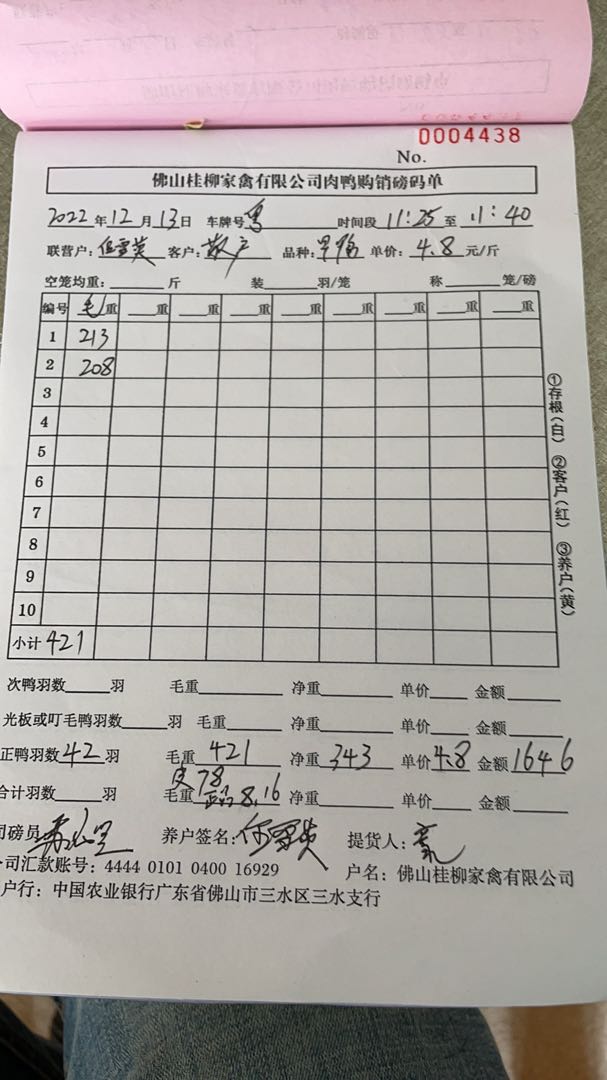 0004438
No.
佛山桂柳家禽有限公司肉鸭购销磅码单
2022年12月13日 车牌号 时间段 11:25 至 11:40
联营户: 客户:散户 品种: 单价:4.8元/斤
空笼均重: 斤 装 羽/笼 称 笼/磅
编号 毛重 重 重 重 重 重 重 重 重
1 213
2 208
3
4
5
6
7
8
9
10
小计 421
①存根(白) ②客户(红) ③养户(黄)
次鸭羽数 羽 毛重 净重 单价 金额
光板或叮毛鸭羽数 羽 毛重 净重 单价 金额
正鸭羽数 42 羽 毛重 421 净重 343 单价 4.8 金额 1646
皮 78
合计羽数 羽 毛重 8.16 净重 单价 金额
司磅员: 养户签名: 提货人:
公司汇款账号: 4444 0101 0400 16929 户名: 佛山桂柳家禽有限公司
户行: 中国农业银行广东省佛山市三水区三水支行